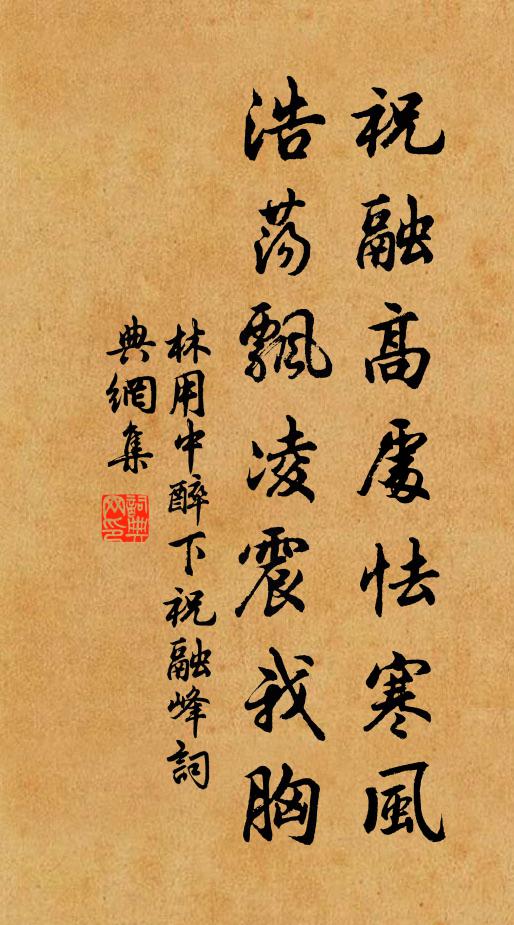 祝融高處怯寒風
浩蕩飄凌震我胸
林用中醉下祝融峰詞
典網集
詞典
網印